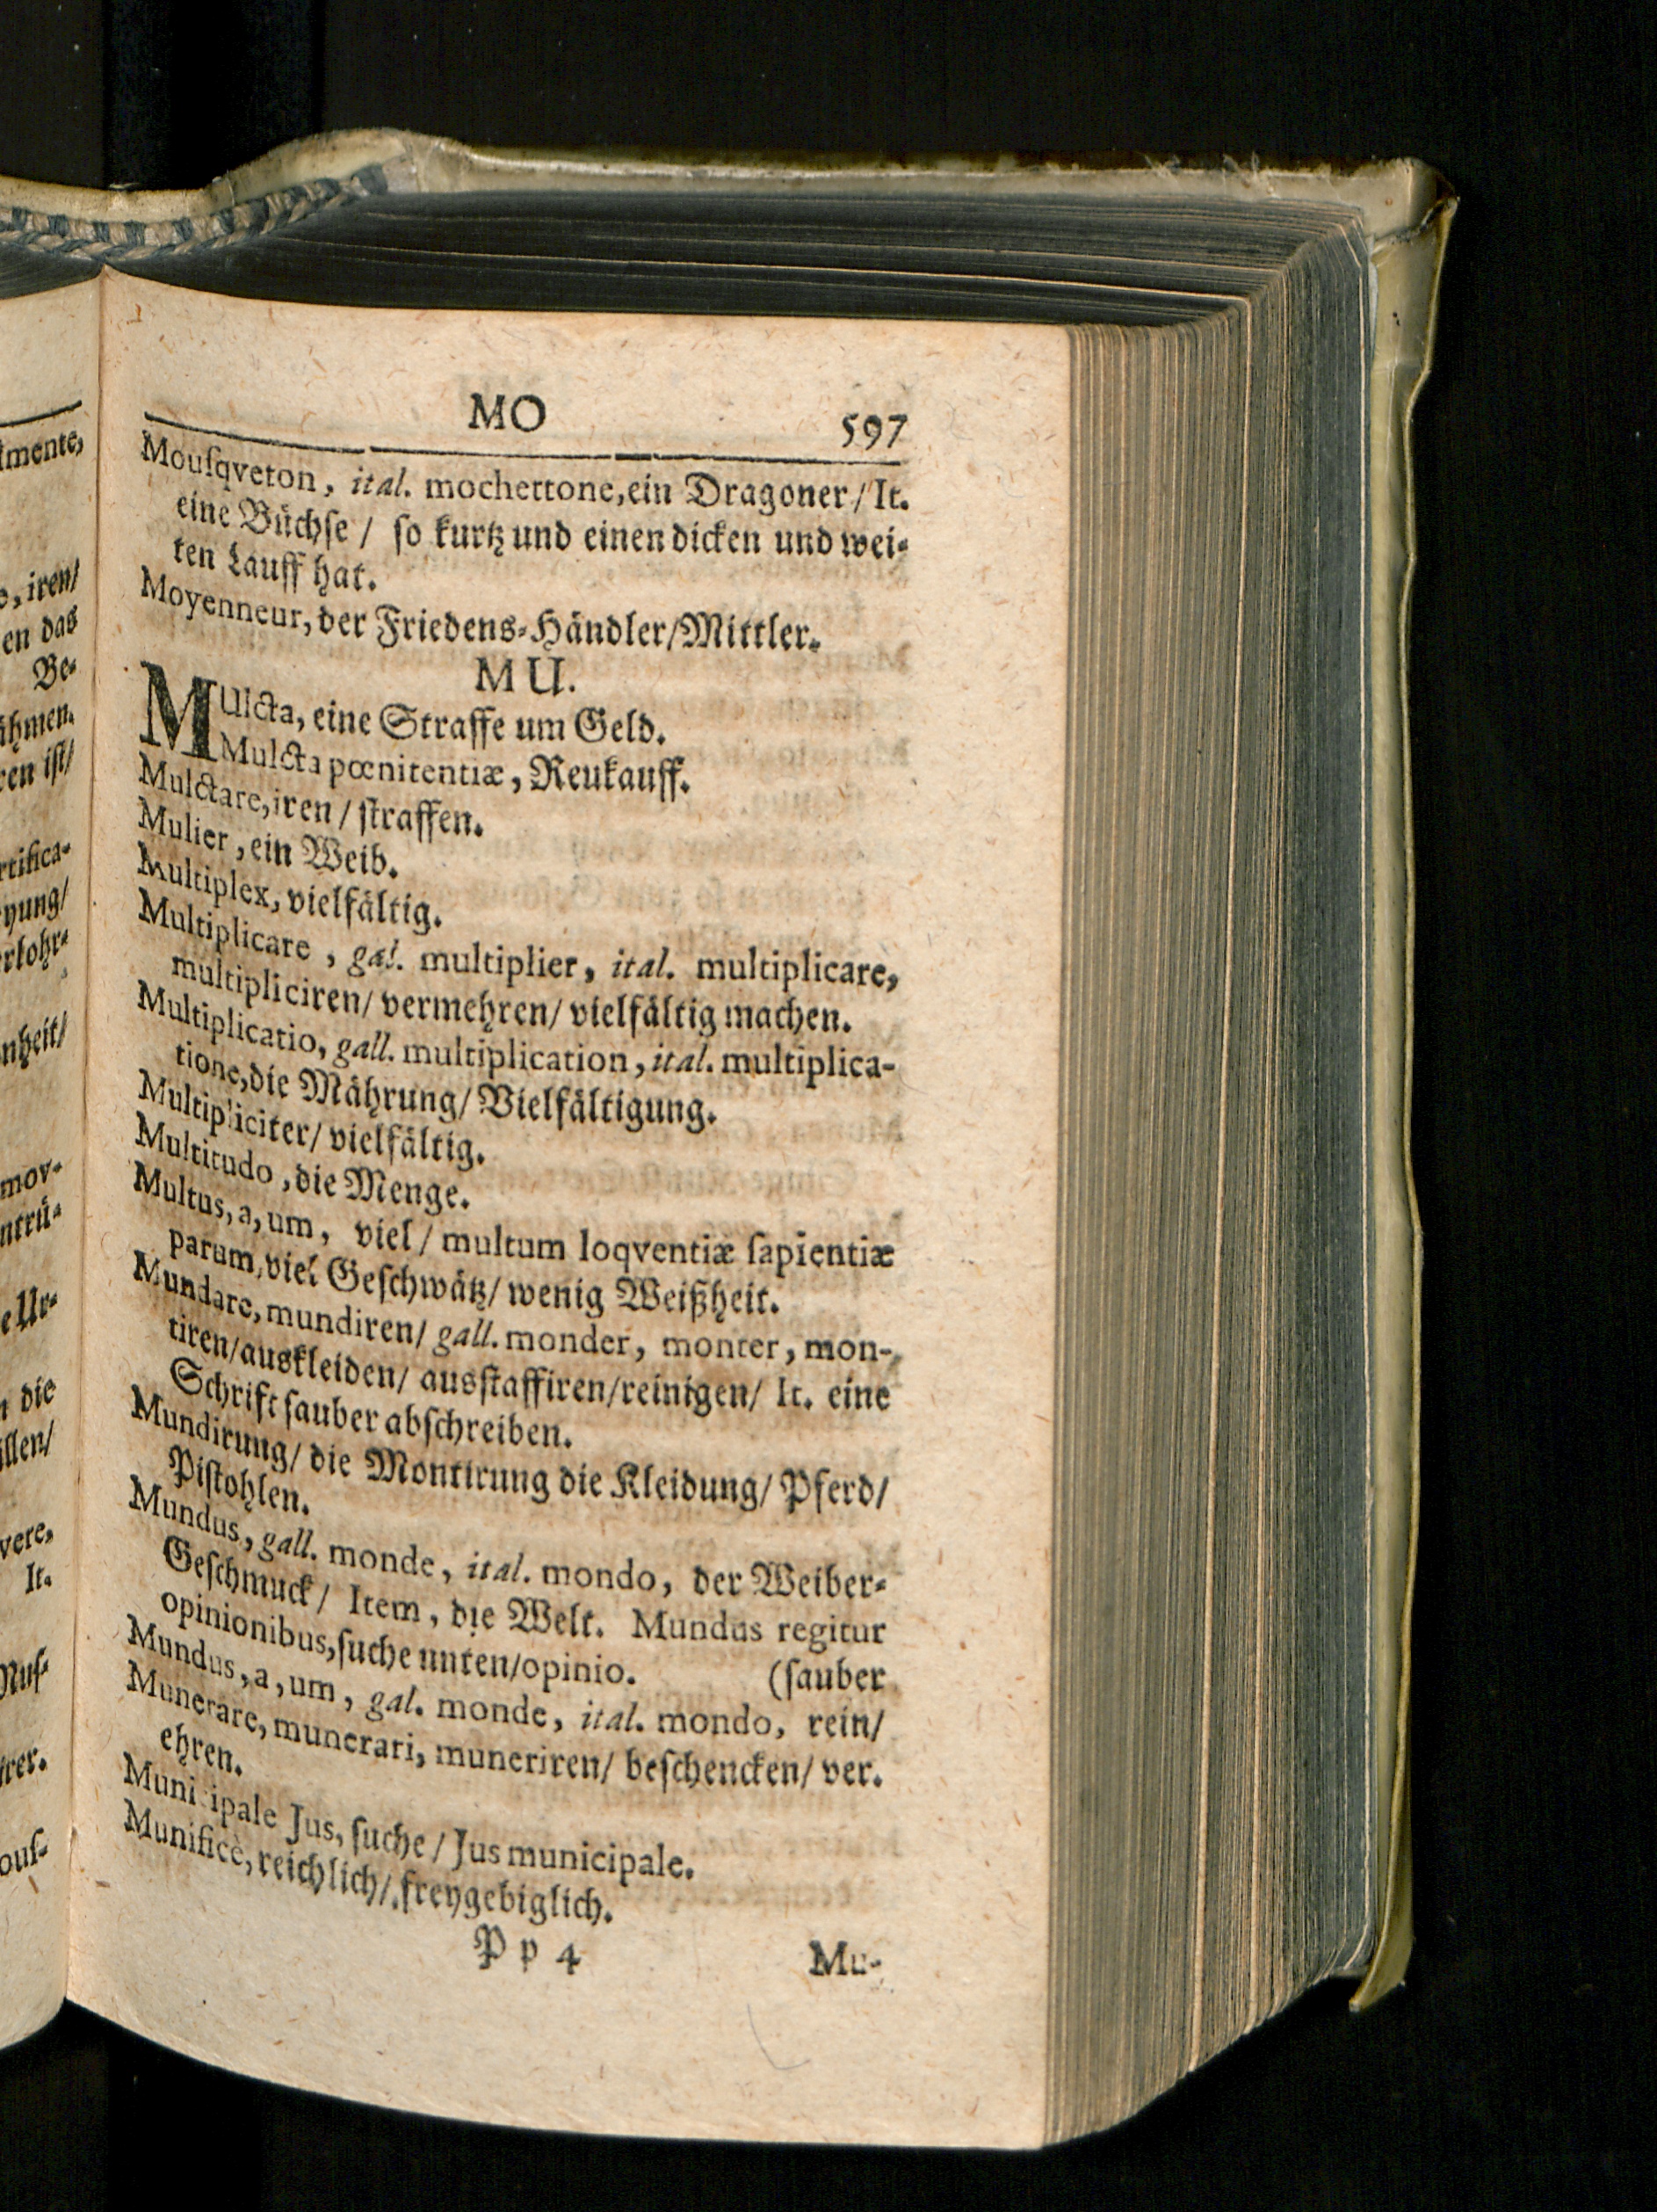 MO 597
Mouſqveton, ital. mochettone, ein Dragoner / It.
eine Büchſe / ſo kurtz und einen dicken und wei-
ten Lauff hat.
Moyenneur, der Friedens-Händler/Mittler.
MU.
MUlcta, eine Straffe um Geld.
Mulcta pœnitentiæ, Reukauff.
Mulctare, iren / ſtraffen.
Mulier, ein Weib.
Multiplex, vielfältig.
Multiplicare, gal. multiplier, ital. multiplicare,
multipliciren/ vermehren/ vielfältig machen.
Multiplicatio, gall. multiplication, ital. multiplica-
tione, die Mährung/ Vielfältigung.
Multipliciter/ vielfältig.
Multitudo, die Menge.
Multus, a, um, viel / multum loqventiæ ſapientiæ
parum, viel Geſchwätz/ wenig Weißheit.
Mundare, mundiren/ gall. monder, monter, mon-
tiren/auskleiden/ ausſtaffiren/reinigen/ It. eine
Schrift ſauber abſchreiben.
Mundirung/ die Montirung die Kleidung/ Pferd/
Piſtohlen.
Mundus, gall. monde, ital. mondo, der Weiber-
Geſchmuck / Item, die Welt. Mundus regitur
opinionibus, ſuche unten/opinio. (ſauber
Mundus, a, um, gal. monde, ital. mondo, rein/
Munerare, munerari, muneriren/ beſchencken/ ver.
ehren.
Municipale Jus, ſuche / Jus municipale.
Munificè, reichlich/ freygebiglich.
Pp 4 Mu-
lmente,
iren/
en das
Be-
ähmen.
ren iſt/
rtifica-
yung/
rlohr-
nheit/
mov-
ntrü-
e Ur-
die
illen/
vere,
It.
Muſ-
irer.
ouſ-